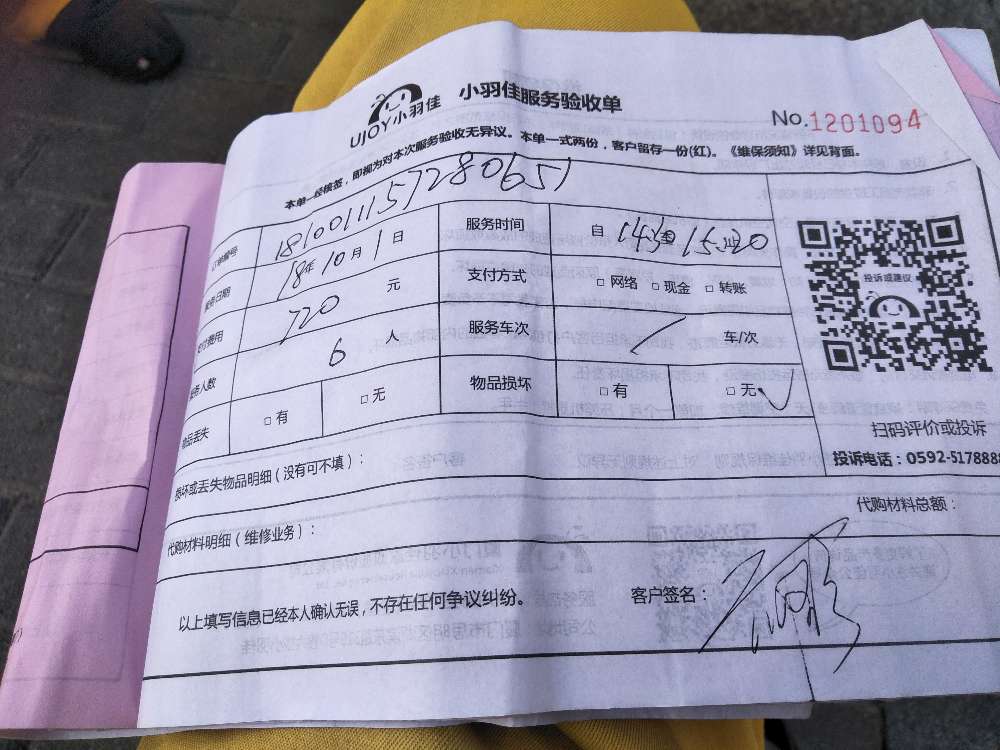 UJOY小羽佳 小羽佳服务验收单
No.1201094
本单一经核签，即视为对本次服务验收无异议。本单一式两份，客户留存一份(红)。《维保须知》详见背面。
订单编号 1810011157280651
服务日期 18年10月1日 服务时间 自
支付费用 720 元 支付方式 □ 网络 □ 现金 □ 转账
服务人数 6 人 服务车次 车/次
物品丢失 □ 有 □ 无 物品损坏 □ 有 □ 无
投诉或建议
扫码评价或投诉
投诉电话：0592-5178888
损坏或丢失物品明细（没有可不填）：
代购材料明细（维修业务）： 代购材料总额：
以上填写信息已经本人确认无误，不存在任何争议纠纷。 客户签名：